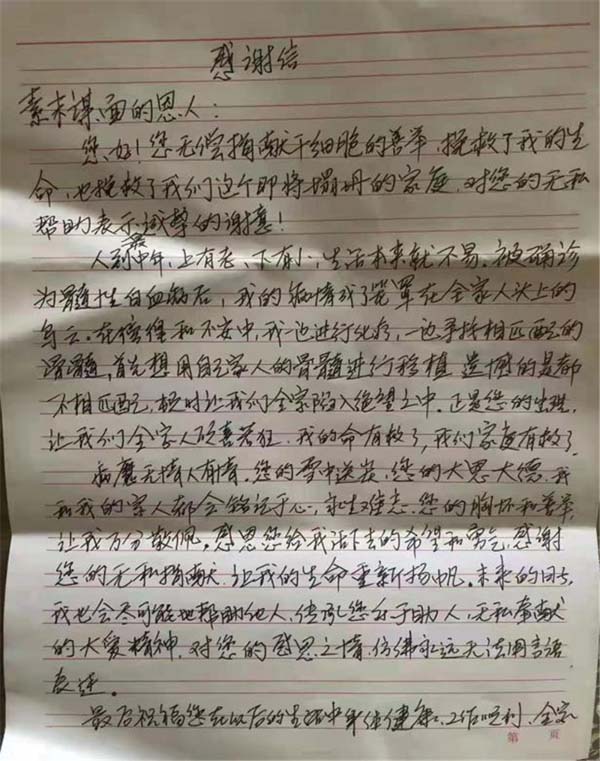 感谢信
素未谋面的恩人：
您好！您无偿捐献干细胞的善举，挽救了我的生
命，也挽救了我们这个即将塌冊的家庭，对您的无私
帮助表示诚挚的谢意！
人到中年，上有老、下有小，生活本来就不易。被确诊
为髓性白血病后，我的病情成了笼罩在全家人头上的
乌云。在彷徨和不安中，我一边进行化疗，一边寻找相匹配的
骨髓，首先想用自己家人的骨髓进行移植，遗憾的是都
不相匹配，顿时让我们全家陷入绝望之中。正是您的出现，
让我们全家人欣喜若狂，我的命有救了，我们家庭有救了。
病魔无情人有情。您的雪中送炭，您的大恩大德，我
和我的家人都会铭记于心，永生难忘。您的胸怀和善举，
让我万分敬佩。感恩您给我活下去的希望和勇气，感谢
您的无私捐献，让我的生命重新扬帆。未来的日子，
我也会尽可能地帮助他人，传承您乐于助人、无私奉献
的大爱精神，对您的感恩之情，仿佛永远无法用言语
表述。
最后祝福您在以后的生活中身体健康、工作顺利、全家
第 页